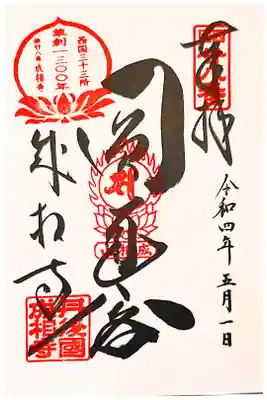 奉拝
令和四年五月一日
西国三十三所
草創一三〇〇年
第廿八番 成相寺
成相山
成相寺
丹後國
成相寺